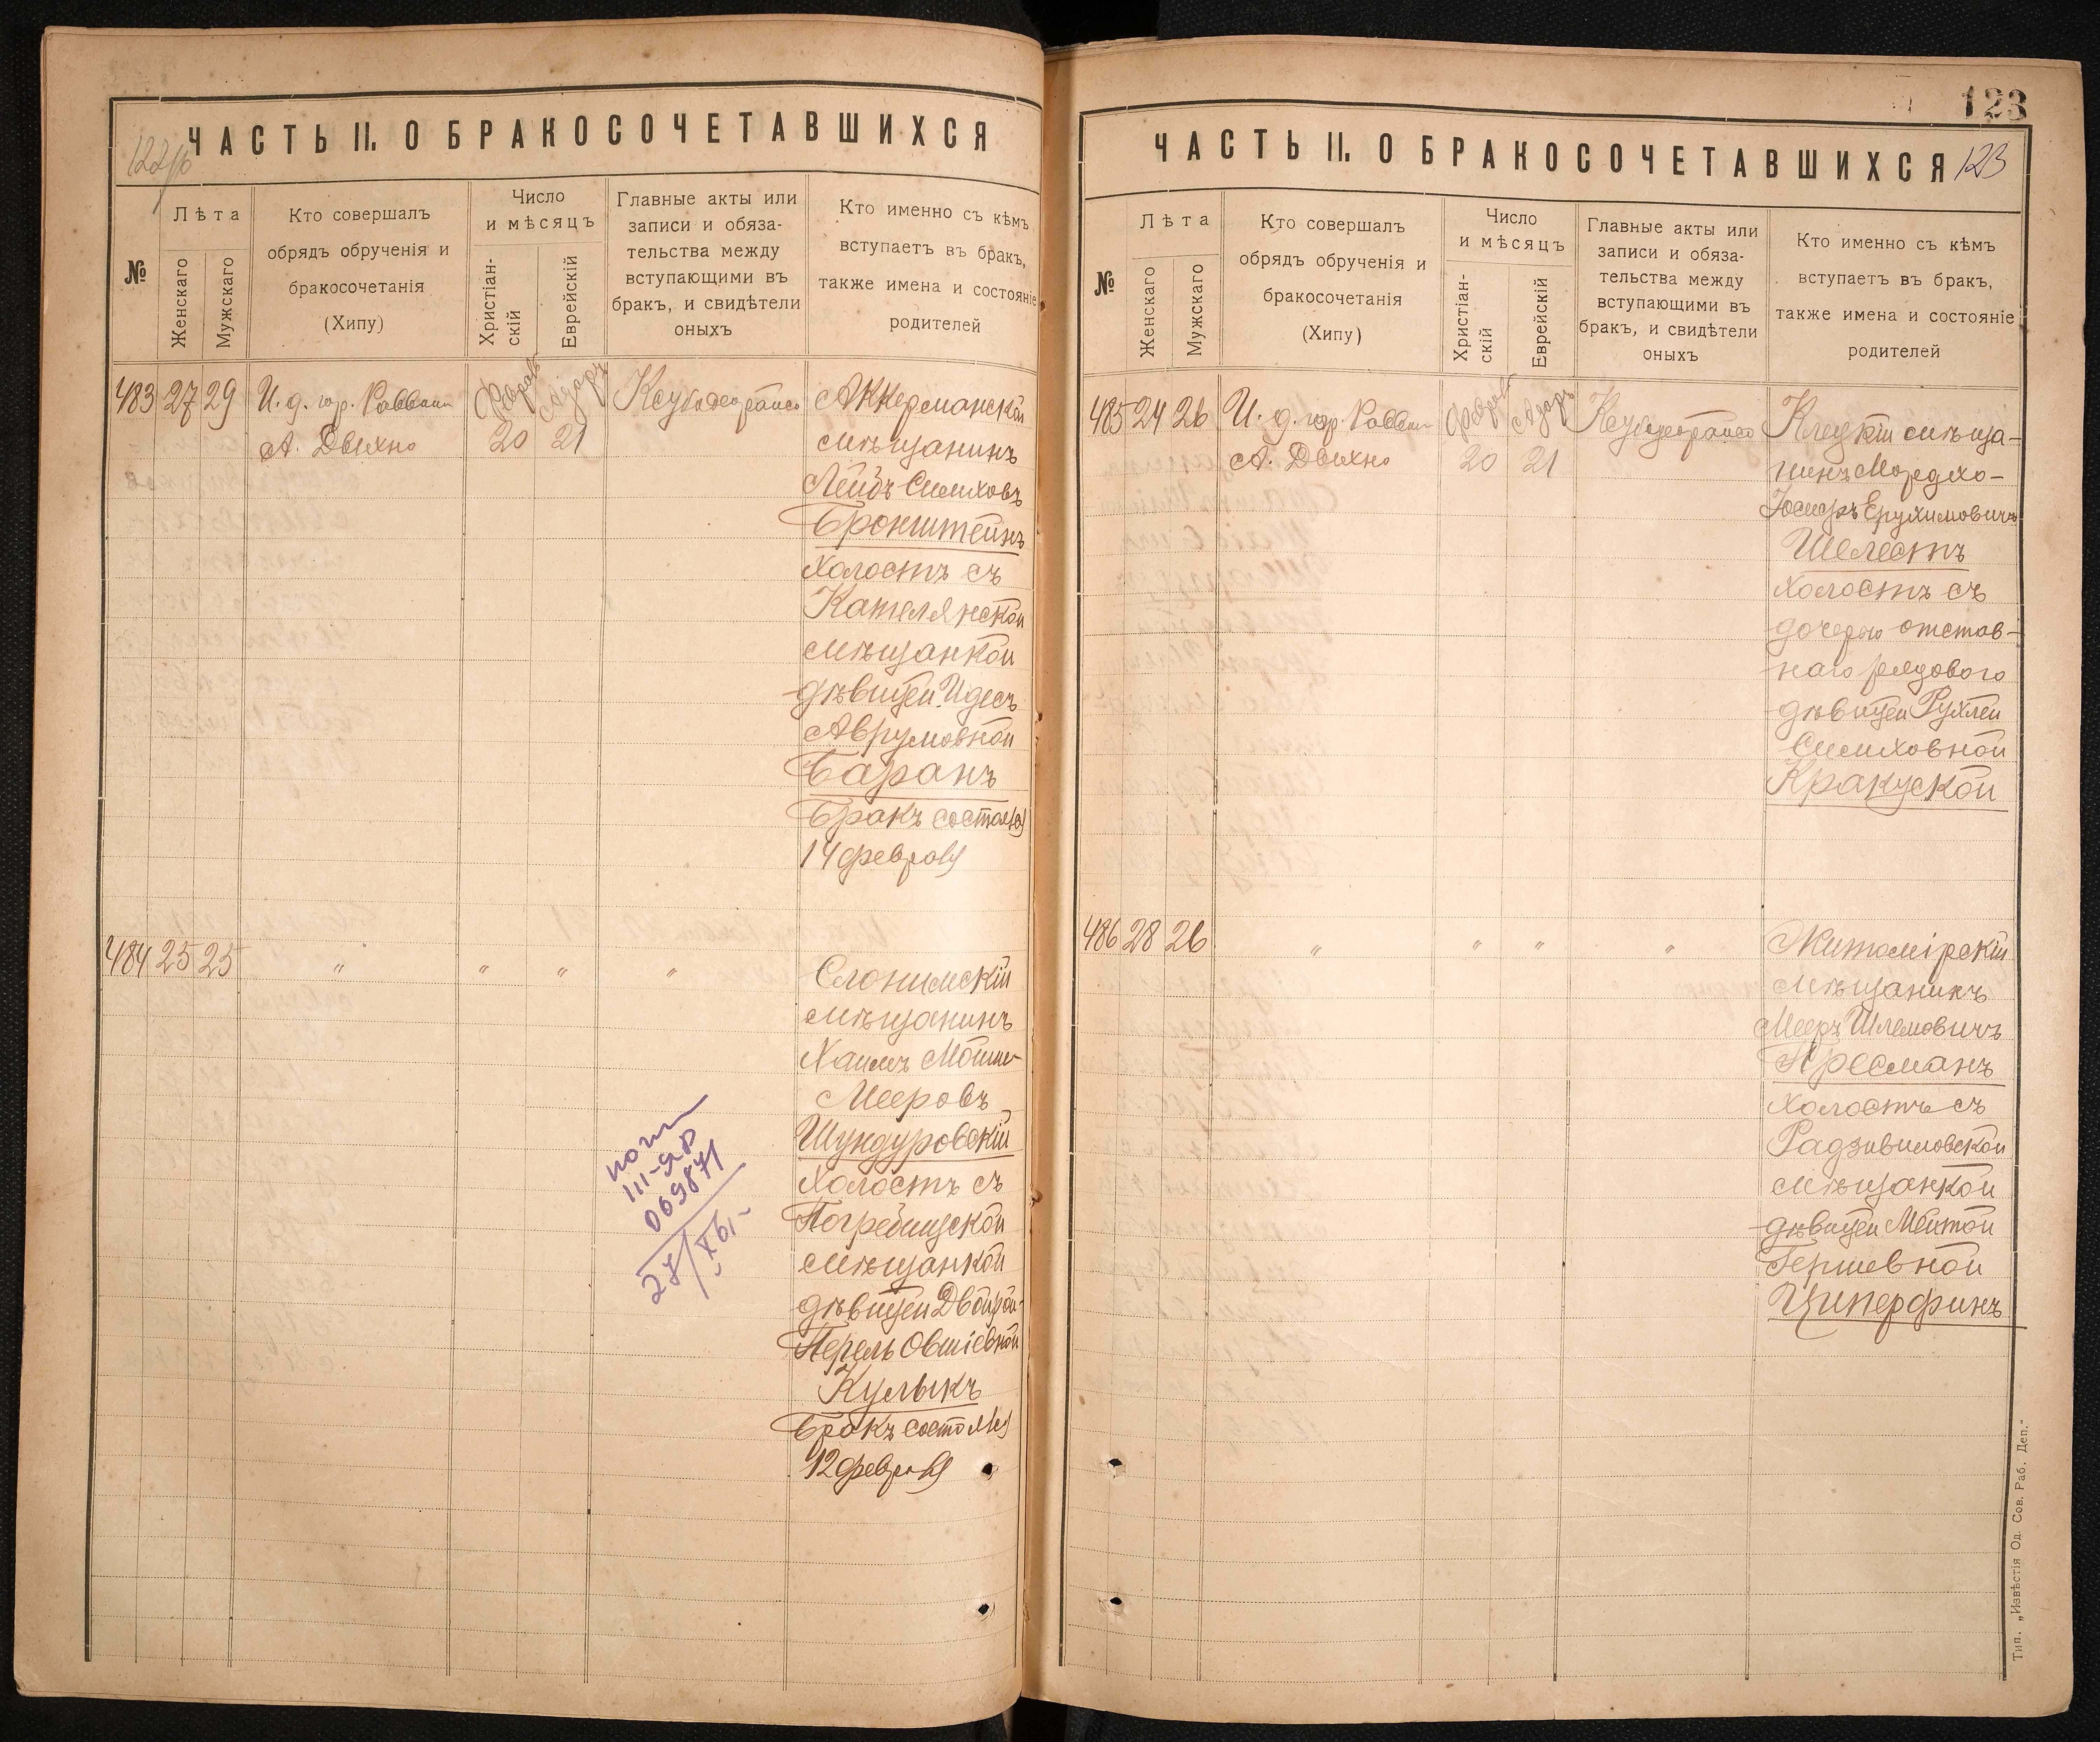 ЧАСТЬ II. О БРАКОСОЧЕТАВШИХСЯ
№
Лѣта
Женскаго
Мужскаго
Кто совершалъ
обрядъ обрученія и
бракосочетанія
(Хипу)
Число
и мѣсяцъ
Христіан-
скій
Еврейскій
Главные акты или
записи и обяза-
тельства между
вступающими въ
бракъ, и свидѣтели
оныхъ
Кто именно съ кѣмъ
вступаетъ въ бракъ,
также имена и состояніе
родителей
483 27 29
И. д. гор. Раввин
А. Двихно
20 21
Аккерманскій
мѣщанинъ
Лейбъ Симховъ
Бронштейнъ
холостъ съ
Кателянской
мѣщанкой
дѣвицей Идесъ
Аврумовной
Баранъ
Бракъ состоял(ся)
14 февраля
484 25 25
" " " "
Слонимскій
мѣщанинъ
Хаимъ Мойше-
Мееровъ
Шундуровскій
холостъ съ
Погребищской
мѣщанкой
дѣвицей Двойрой-
Перель Овшіевной
Кулыкъ
Бракъ состоял(ся)
12 февраля
III-ЯР
069871
27/XI
123
ЧАСТЬ II. О БРАКОСОЧЕТАВШИХСЯ
123
№
Лѣта
Женскаго
Мужскаго
Кто совершалъ
обрядъ обрученія и
бракосочетанія
(Хипу)
Число
и мѣсяцъ
Христіан-
скій
Еврейскій
Главные акты или
записи и обяза-
тельства между
вступающими въ
бракъ, и свидѣтели
оныхъ
Кто именно съ кѣмъ
вступаетъ въ бракъ,
также имена и состояніе
родителей
485 24 26
И. д. гор. Раввин
А. Двихно
20 21
Клецкій мѣща-
нинъ Мордхо-
Іосифъ Ерухимовичъ
Шелестъ
холостъ съ
дочерью отстав-
наго рядового
дѣвицей Рухлей
Симховной
Кракуской
486 28 26
" " " "
Житомірскій
мѣщанинъ
Мееръ Шлемовичъ
Пресманъ
холостъ съ
Радзивиловской
мѣщанкой
дѣвицей Мейтой
Гершевной
Циперфинъ
Тип. „Извѣстія Од. Сов. Раб. Деп."